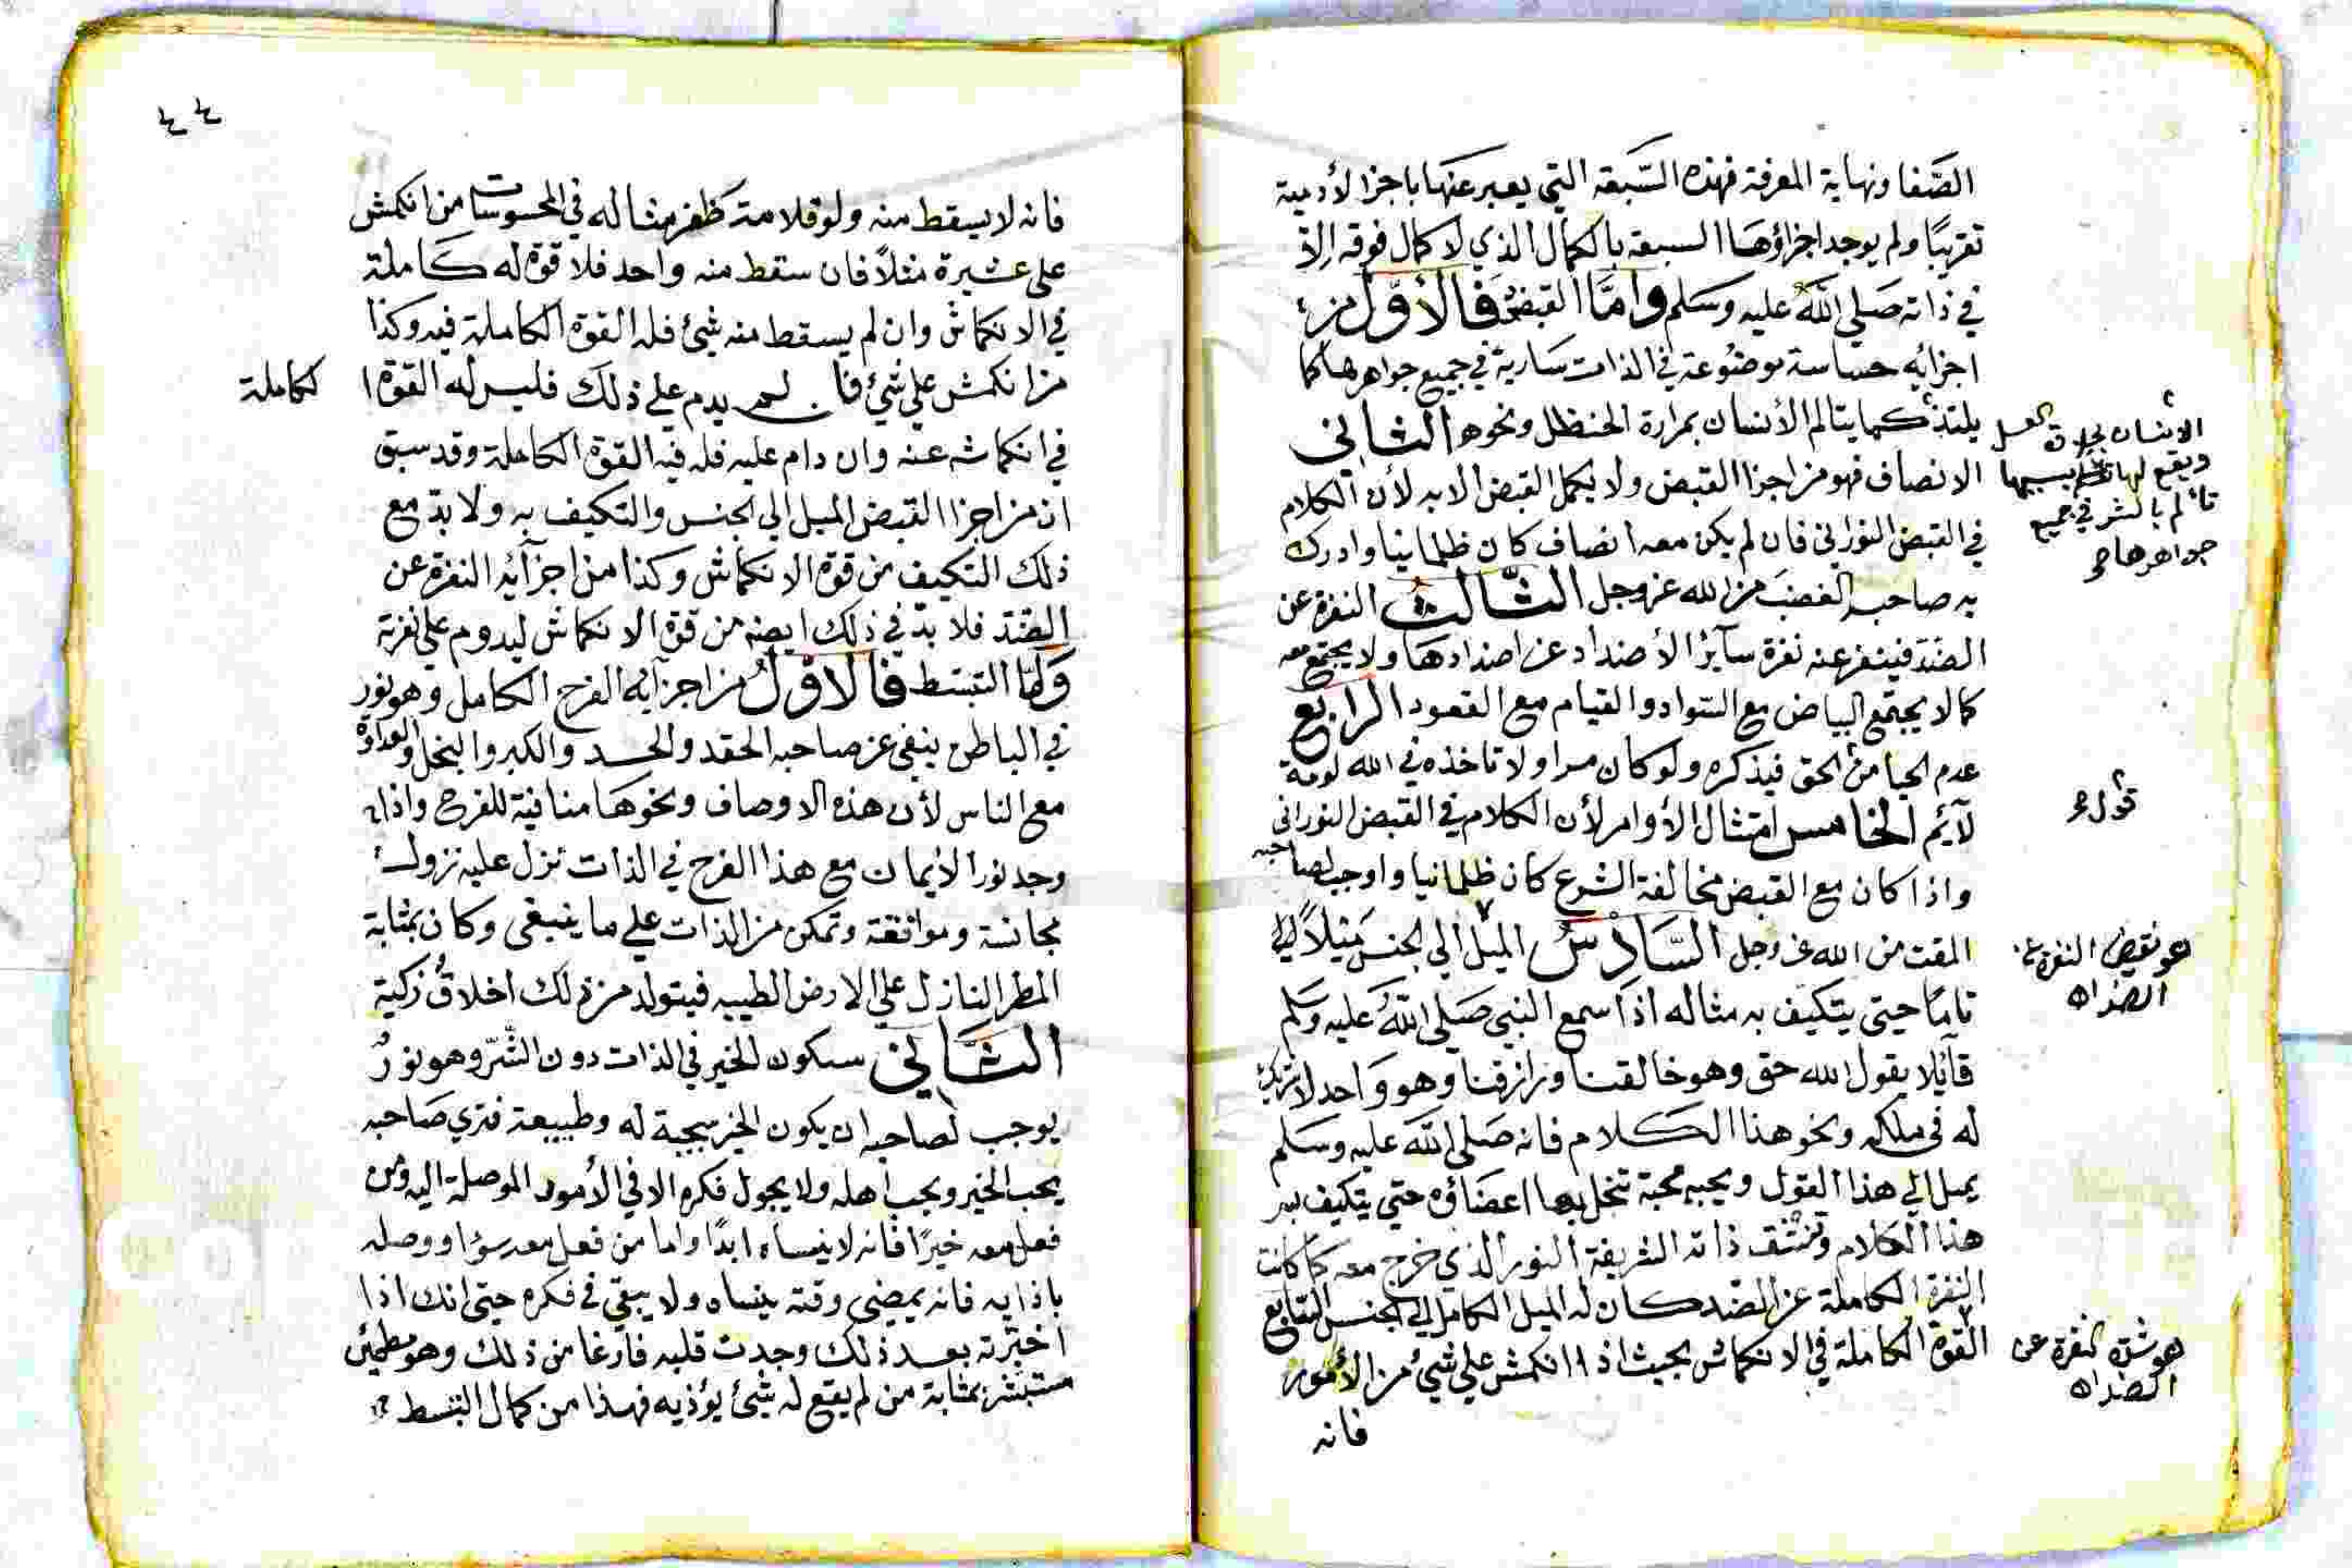 الصفا ونهاية المعرفة فهذه السبعة التي يعبر عنها باجزا الأدمية
تقريبًا ولم يوجد اجزاؤها السبعة بالكمال الذي لا كمال فوقه إلا
في ذاته صلي الله عليه وسلم وامَّا القبض فالأوَّل من
اجزايه حساسة موضوعة في الذات سارية في جميع جواهرها كما
يلتذ كما يتالم الأنسان بمرارة الحنظل ونحوه الثاني
الانسان بحلاوة العسل
ويقع لها بسببها
تألم بالشر في جميع
جواهرها
الانصاف فهو من اجزا القبض ولا يكمل القبض الا به لأن الكلام
في القبض النوراني فان لم يكن معه انصاف كان ظلمانيا وادرك
به صاحبه الغضب من الله عز وجل الثَّالث النفرة عن
الضد فينفر عنه نفرة سآئر الأضداد عن اضدادها ولا يجتمع معه
كما لا يجتمع البياض مع السواد والقيام مع القعود الرابع
عدم الحيا من الحق فيذكره ولو كان مرا ولا تاخذه في الله لومة
قول
لآئم الخامس امتثال الأوامر لأن الكلام في القبض النوراني
واذا كان مع القبض مخالفة الشرع كان ظلمانيا واوجب لصاحبه
المقت من الله عز وجل السَّادسُ الميل الي الجنس ميلاً
هو نقيض النفرة عن
الضد اه
تامًا حتي يتكيف به مثاله اذا سمع النبي صلي الله عليه وسلم
قآئلا يقول الله حق وهو خالقنا ورازقنا وهو واحد لا شريك
له في ملكه ونحو هذا الكلام فانه صلي الله عليه وسلم
يميل الي هذا القول ويحبه محبة تنحل بها اعضاؤه حتي يتكيف بسر
هذا الكلام وتنشف ذاته الشريفة النور الذي خرج معه كما كانت
النفرة الكاملة عن الضد كان له الميل الكامل الي الجنس السَّابع
القوة الكاملة في الانكماش بحيث اذا انكمش علي شيئ من الأمور
هو شدة النفرة عن
الضد اه
فانه
٤٤
فانه لا يسقط منه ولو قلامة ظفر مثاله في المحسوسات من انكمش
علي عشيرة مثلاً فان سقط منه واحد فلا قوة له كاملة
في الانكماش وان لم يسقط منه شيئ فله القوة الكاملة فيه وكذا
من انكمش علي شيئ فان لم يدم علي ذلك فليس له القوة الكاملة
في انكماشه عنه وان دام عليه فله فيه القوة الكاملة وقد سبق
ان من اجزا القبض الميل الي الجنس والتكيف به ولا بدّ مع
ذلك التكيف من قوة الانكماش وكذا من اجزآئه النفرة عن
الضّد فلا بدّ في ذلك ايضه من قوة الانكماش ليدوم علي نفرته
وامَّا التبسّط فالاوَّلُ من اجزآيه الفرح الكامل وهو نور
في الباطن ينفي عن صاحبه الحقد والحسد والكبر والبخل والعداوة
مع الناس لأن هذه الاوصاف ونحوها منافية للفرح واذا
وجد نور الأيمان مع هذا الفرح في الذات نزل عليه نزول
مجانسة وموافقة وتمكن من الذات علي ما ينبغي وكان بمثابة
المطر النازل علي الارض الطيبه فيتولد من ذلك اخلاقٌ زكية
الثَّاني سكون الخير في الذات دون الشَّر وهو نورٌ
يوجب لصاحبه ان يكون الخير سجية له وطبيعة فتري صاحبه
يحب الخير ويحب اهله ولا يجول فكره الا في الأمور الموصلة اليه ومن
فعل معه خيرًا فانه لا ينساه ابدًا واما من فعل معه سؤا ووصله
باذايه فانه يمضي وقته ينساه ولا يبقي في فكره حتي انك اذا
اختبرته بعد ذلك وجدت قلبه فارغا من ذلك وهو مطمئن
مستبشر بمثابة من لم يقع له شيئ يؤذيه فهذا من كمال التبسط